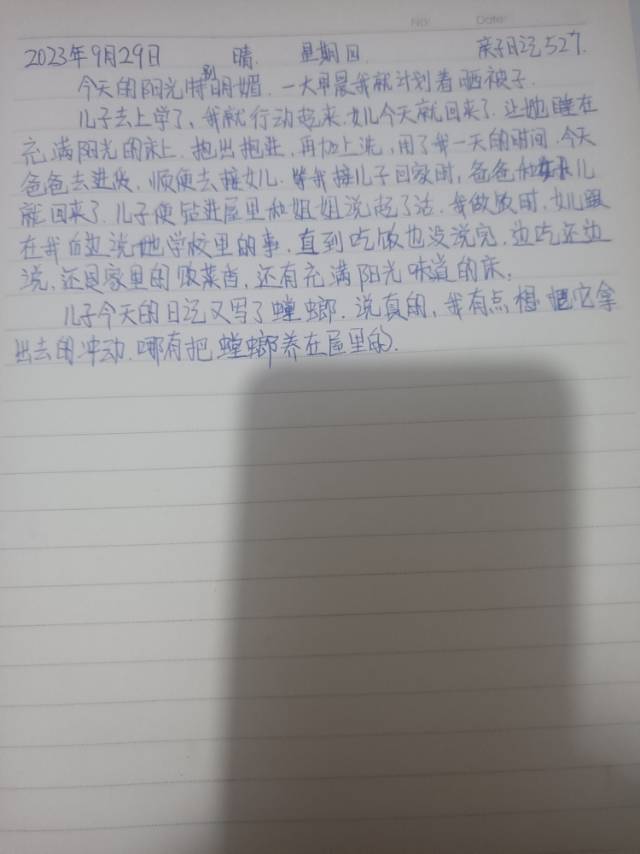 No: Date:
2023年9月29日 晴 星期日 亲子日记527.
今天的阳光特别明媚.一大早晨我就计划着晒被子.
儿子去上学了,我就行动起来.女儿今天就回来了.让她睡在
充满阳光的床上.抱出抱进,再加上洗,用了我一天的时间.今天
爸爸去进货,顺便去接女儿.等我接儿子回家时,爸爸和女儿
就回来了.儿子便钻进屋里和姐姐说起了话.我做饭时,女儿跟
在我旁边说她学校里的事.直到吃饭也没说完,边吃还边
说,还是家里的饭菜香,还有充满阳光味道的床。
儿子今天的日记又写了螳螂.说真的,我有点想把它拿
出去的冲动.哪有把螳螂养在屋里的.